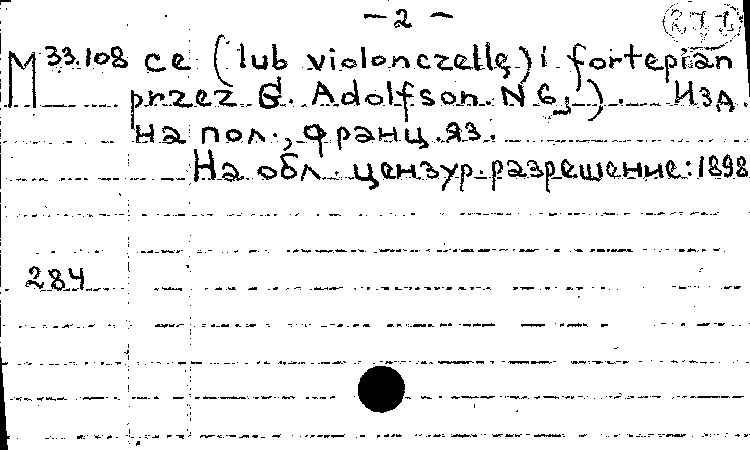 - 2 -
271
M 33.108 ce (lub violonczellę) i fortepian
przez G. Adolfson. N 6„). Изд.
на пол., франц. яз.
На обл. цензур. разрешение: 1898
284